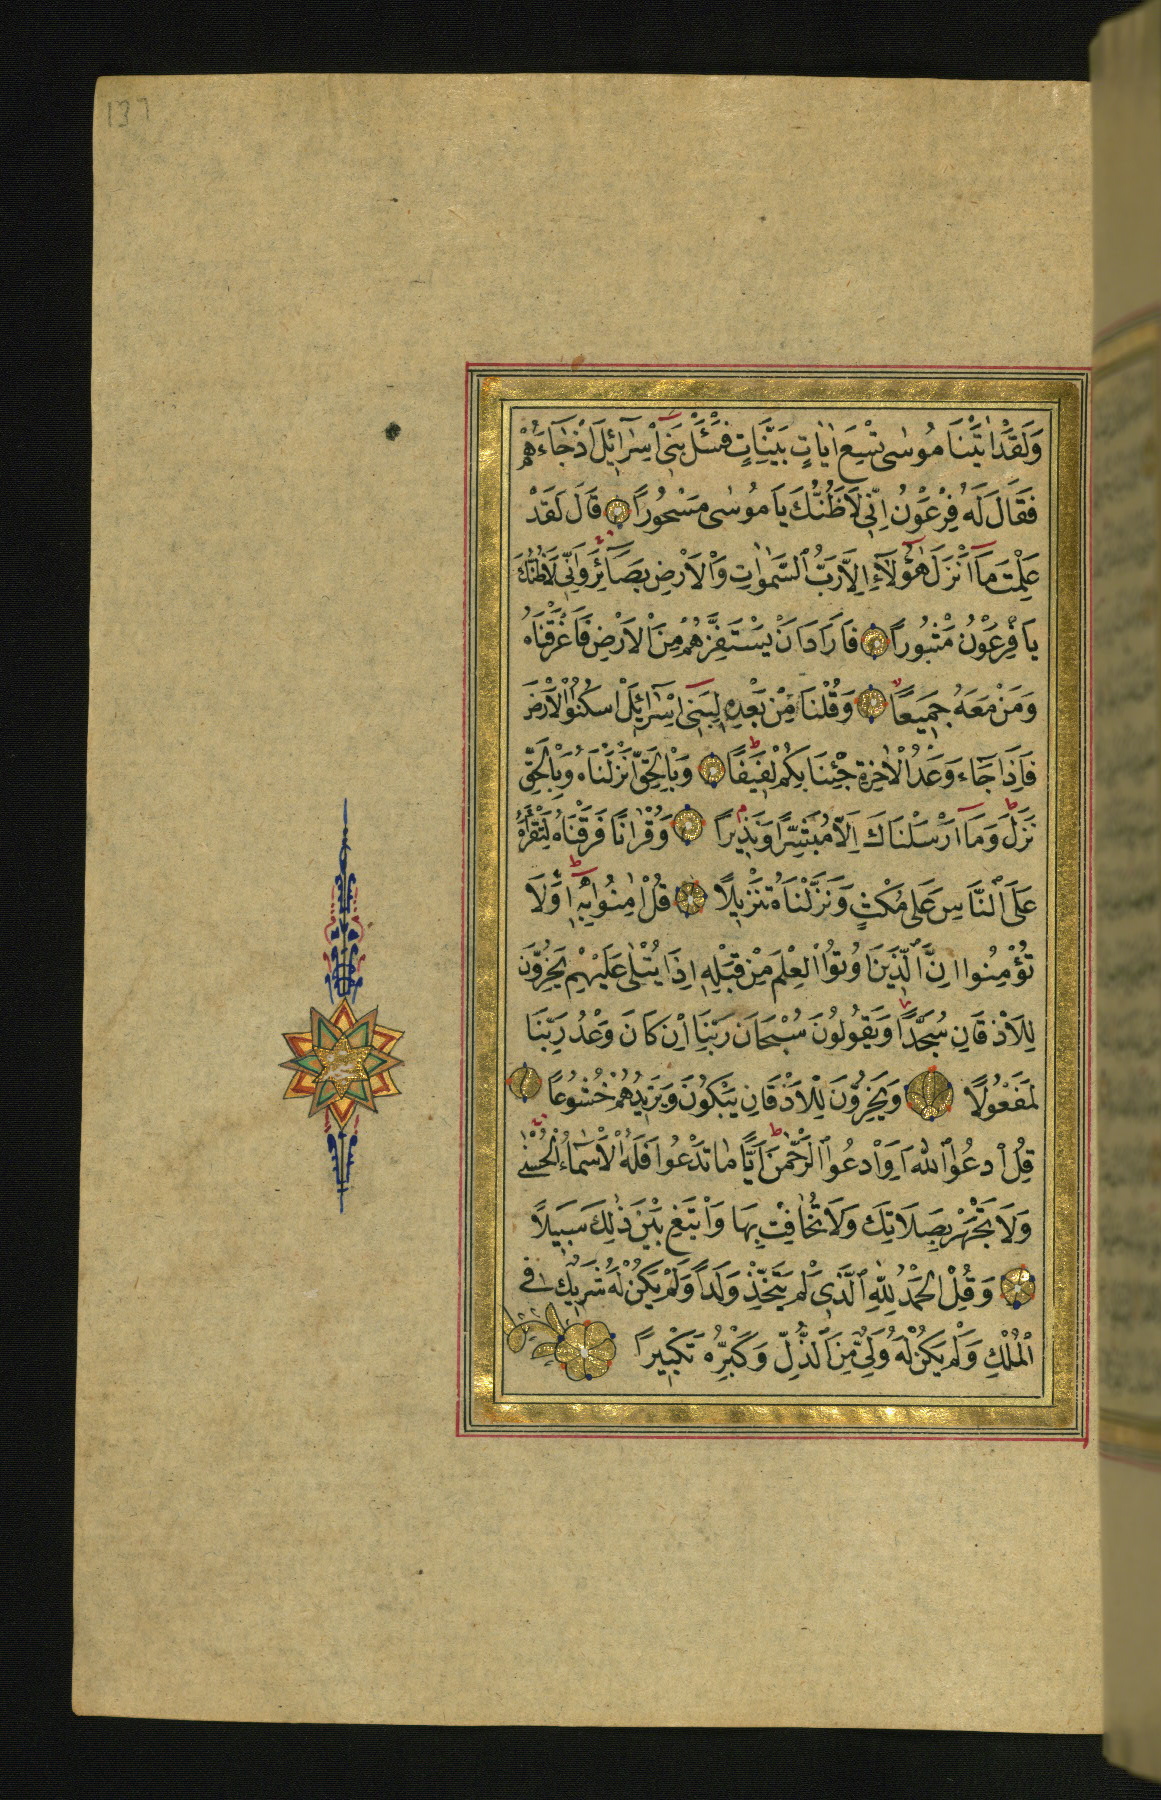 137
وَلَقَدْ اٰتَيْنَا مُوسٰى تِسْعَ اٰيَاتٍ بَيِّنَاتٍ فَسْـَٔلْ بَنٓى اِسْرَٓائِلَ اِذْ جَٓاءَهُمْ
فَقَالَ لَهُ فِرْعَوْنُ اِنّٖى لَاَظُنُّكَ يَا مُوسٰى مَسْحُورًا قَالَ لَقَدْ
عَلِمْتَ مَٓا اَنْزَلَ هٰٓؤُلَٓاءِ اِلَّا رَبُّ السَّمٰوَاتِ وَالْاَرْضِ بَصَٓائِرَ وَاِنّٖى لَاَظُنُّكَ
يَا فِرْعَوْنُ مَثْبُورًا فَاَرَادَ اَنْ يَسْتَفِزَّهُمْ مِنَ الْاَرْضِ فَاَغْرَقْنَاهُ
وَمَنْ مَعَهُ جَمِيعًا وَقُلْنَا مِنْ بَعْدِهٖ لِبَنٓى اِسْرَٓائِلَ اسْكُنُوا الْاَرْضَ
فَاِذَا جَٓاءَ وَعْدُ الْاٰخِرَةِ جِئْنَا بِكُمْ لَفِيفًا وَبِالْحَقِّ اَنْزَلْنَاهُ وَبِالْحَقِّ
نَزَلَ وَمَٓا اَرْسَلْنَاكَ اِلَّا مُبَشِّرًا وَنَذِيرًا وَقُرْاٰنًا فَرَقْنَاهُ لِتَقْرَاَهُ
عَلَى النَّاسِ عَلٰى مُكْثٍ وَنَزَّلْنَاهُ تَنْزِيلًا قُلْ اٰمِنُوا بِهٖٓ اَوْ لَا
تُؤْمِنُوا اِنَّ الَّذِينَ اُوتُوا الْعِلْمَ مِنْ قَبْلِهٖ اِذَا يُتْلٰى عَلَيْهِمْ يَخِرُّونَ
لِلْاَذْقَانِ سُجَّدًا وَيَقُولُونَ سُبْحَانَ رَبِّنَا اِنْ كَانَ وَعْدُ رَبِّنَا
لَمَفْعُولًا وَيَخِرُّونَ لِلْاَذْقَانِ يَبْكُونَ وَيَزِيدُهُمْ خُشُوعًا
قُلِ ادْعُوا اللّٰهَ اَوِ ادْعُوا الرَّحْمٰنَ اَيًّا مَا تَدْعُوا فَلَهُ الْاَسْمَٓاءُ الْحُسْنٰى
وَلَا تَجْهَرْ بِصَلَاتِكَ وَلَا تُخَافِتْ بِهَا وَابْتَغِ بَيْنَ ذٰلِكَ سَبِيلًا
وَقُلِ الْحَمْدُ لِلّٰهِ الَّذِى لَمْ يَتَّخِذْ وَلَدًا وَلَمْ يَكُنْ لَهُ شَرِيكٌ فِى
الْمُلْكِ وَلَمْ يَكُنْ لَهُ وَلِىٌّ مِنَ الذُّلِّ وَكَبِّرْهُ تَكْبِيرًا